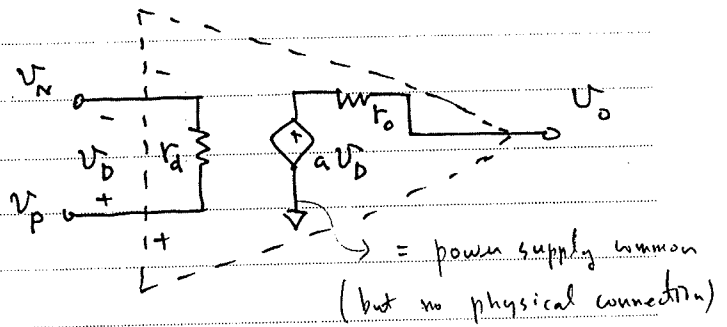 v_N
−
−
v_D
r_d
+
v_P
+
+
a v_D
r_o
v_o
= power supply common
(but no physical connection)